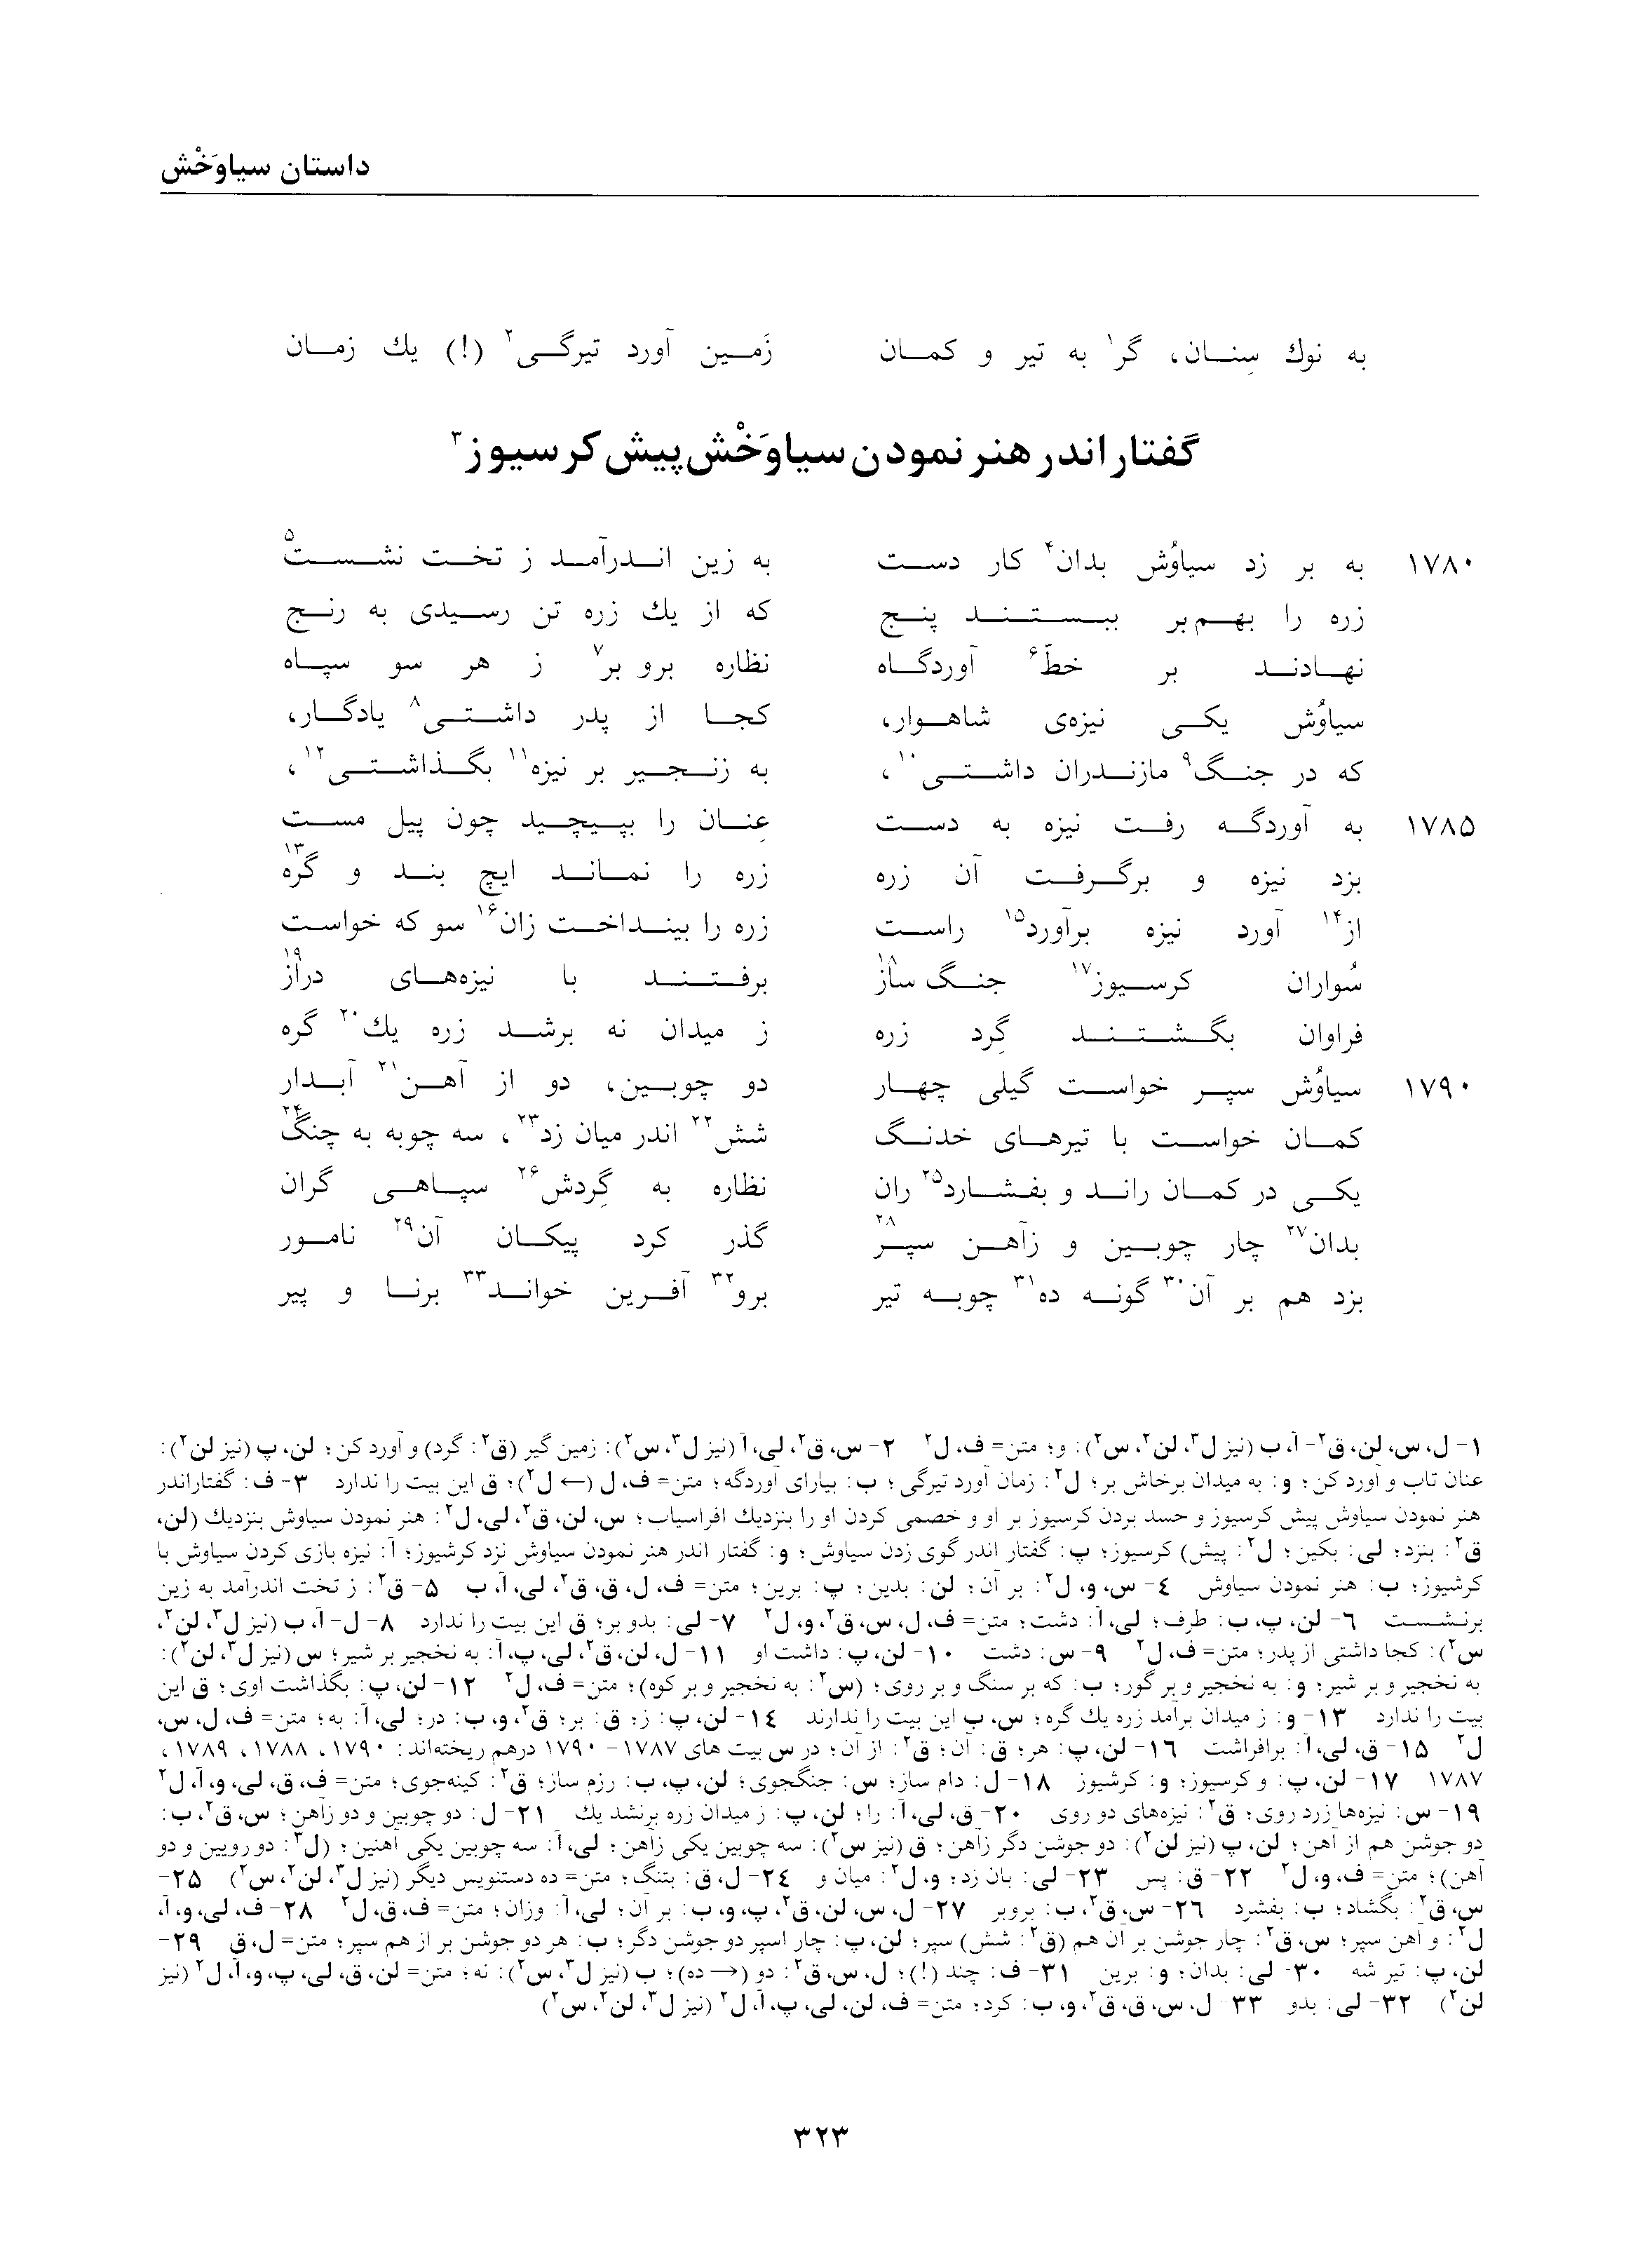 داستان سیاوَخْش
به نوك سِنـان، گر۱ به تیر و کمـان زَمـین آورد تیرگـی۲ (!) یك زمـان
گفتار اندر هنر نمودن سیاوَخْش پیش کرسیوز۳
۱۷۸۰ به بر زد سیاوُش بدان۴ کار دست به زین اندرآمد ز تخت نشست۵
زره را بهم‌بر ببستند پنج که از یك زره تن رسیدی به رنج
نهادند بر خطّ۶ آوردگاه نظاره برو بر۷ ز هر سو سپاه
سیاوُش یکی نیزه‌ی شاهوار، کجا از پدر داشتی۸ یادگار،
که در جنگ۹ مازندران داشتی۱۰، به زنجیر بر نیزه۱۱ بگذاشتی۱۲،
۱۷۸۵ به آوردگه رفت نیزه به دست عِنان را بپیچید چون پیل مست
بزد نیزه و برگرفت آن زره زره را نماند ایچ بند و گره۱۳
از۱۴ آورد نیزه برآورد۱۵ راست زره را بینداخت زان۱۶ سو که خواست
سُواران کرسیوز۱۷ جنگ ساز۱۸ برفتند با نیزه‌های دراز۱۹
فراوان بگشتند گِرد زره ز میدان نه برشد زره یك۲۰ گره
۱۷۹۰ سیاوُش سپر خواست گیلی چهار دو چوبین، دو از آهن۲۱ آبدار
کمان خواست با تیرهای خدنگ شش۲۲ اندر میان زد۲۳، سه چوبه به چنگ۲۴
یکی در کمان راند و بفشارد۲۵ ران نظاره به گِردش۲۶ سپاهی گران
بدان۲۷ چار چوبین و زآهن سپر۲۸ گذر کرد پیکان آن۲۹ نامور
بزد هم بر آن۳۰ گونه ده۳۱ چوبه تیر برو۳۲ آفرین خواند۳۳ برنا و پیر
۱- ل، س، لن، ق۲- آ، ب (نیز ل۳، لن۲، س۲): و؛ متن= ف، ل۲ ۲- س، ق۲، لی، آ (نیز ل۳، س۲): زمین گیر (ق۲: گرد) و آورد کن؛ لن، پ (نیز لن۲):
عنان تاب و آورد کن؛ و: به میدان برخاش بر؛ ل۲: زمان آورد تیرگی؛ ب: بیارای آوردگه؛ متن= ف، ل (← ل۲)؛ ق این بیت را ندارد ۳- ف: گفتاراندر
هنر نمودن سیاوش پیش کرسیوز و حسد بردن کرسیوز بر او و خصمی کردن او را بنزدیك افراسیاب؛ س، لن، ق۲، لی، ل۲: هنر نمودن سیاوش بنزدیك (لن،
ق۲: بنزد؛ لی: بکین؛ ل۲: پیش) کرسیوز؛ پ: گفتار اندر گوی زدن سیاوش؛ و: گفتار اندر هنر نمودن سیاوش نزد کرشیوز؛ آ: نیزه بازی کردن سیاوش با
کرشیوز؛ ب: هنر نمودن سیاوش ۴- س، و، ل۲: بر آن؛ لن: بدین؛ پ: برین؛ متن= ف، ل، ق، ق۲، لی، آ، ب ۵- ق۲: ز تخت اندرآمد به زین
برنشست ۶- لن، پ، ب: طرف؛ لی، آ: دشت؛ متن= ف، ل، س، ق۲، و، ل۲ ۷- لی: بدو بر؛ ق این بیت را ندارد ۸- ل- آ، ب (نیز ل۳، لن۲،
س۲): کجا داشتی از پدر؛ متن= ف، ل۲ ۹- س: دشت ۱۰- لن، پ: داشت او ۱۱- ل، لن، ق۲، لی، پ، آ: به نخجیر بر شیر؛ س (نیز ل۳، لن۲):
به نخجیر و بر شیر؛ و: به نخجیر و بر گور؛ ب: که بر سنگ و بر روی؛ (س۲: به نخجیر و بر کوه)؛ متن= ف، ل۲ ۱۲- لن، پ: بگذاشت اوی؛ ق این
بیت را ندارد ۱۳- و: ز میدان برامد زره یك گره؛ س، ب این بیت را ندارند ۱۴- لن، پ: ز؛ ق: بر؛ ق۲، و، ب: در؛ لی، آ: به؛ متن= ف، ل، س،
ل۲ ۱۵- ق، لی، آ: برافراشت ۱۶- لن، پ: هر؛ ق: آن؛ ق۲: از آن؛ در س بیت های ۱۷۸۷- ۱۷۹۰ درهم ریخته‌اند: ۱۷۹۰، ۱۷۸۸، ۱۷۸۹،
۱۷۸۷ ۱۷- لن، پ: و کرسیوز؛ و: کرشیوز ۱۸- ل: دام ساز؛ س: جنگجوی؛ لن، پ، ب: رزم ساز؛ ق۲: کینه‌جوی؛ متن= ف، ق، لی، و، آ، ل۲
۱۹- س: نیزه‌ها زرد روی؛ ق۲: نیزه‌های دو روی ۲۰- ق، لی، آ: را؛ لن، پ: ز میدان زره برنشد یك ۲۱- ل: دو چوبین و دو زاهن؛ س، ق۲، ب:
دو جوشن هم از آهن؛ لن، پ (نیز لن۲): دو جوشن دگر زاهن؛ ق (نیز س۲): سه چوبین یکی زآهن؛ لی، آ: سه چوبین یکی آهنین؛ (ل۳: دو رویین و دو
آهن)؛ متن= ف، و، ل۲ ۲۲- ق: پس ۲۳- لی: بان زد؛ و، ل۲: میان و ۲۴- ل، ق: بتنگ؛ متن= ده دستنویس دیگر (نیز ل۳، لن۲، س۲) ۲۵-
س، ق۲: بگشاد؛ ب: بفشرد ۲۶- س، ق۲، ب: بروبر ۲۷- ل، س، لن، ق۲، پ، و، ب: بر آن؛ لی، آ: وزان؛ متن= ف، ق، ل۲ ۲۸- ف، لی، و، آ،
ل۲: و آهن سپر؛ س، ق۲: چار جوشن بر آن هم (ق۲: شش) سپر؛ لن، پ: چار اسپر دو جوشن دگر؛ ب: هر دو جوشن بر از هم سپر؛ متن= ل، ق ۲۹-
لن، پ: تیر شه ۳۰- لی: بدان؛ و: برین ۳۱- ف: چند (!)؛ ل، س، ق۲: دو (→ ده)؛ ب (نیز ل۳، س۲): نه؛ متن= لن، ق، لی، پ، و، آ، ل۲ (نیز
لن۲) ۳۲- لی: بدو ۳۳- ل، س، ق، ق۲، و، ب: کرد؛ متن= ف، لن، لی، پ، آ، ل۲ (نیز ل۳، لن۲، س۲)
۳۲۳